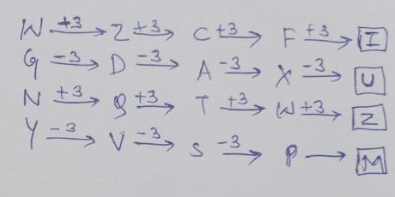 W +3→ Z +3→ C +3→ F +3→ I
G -3→ D -3→ A -3→ X -3→ U
N +3→ Q +3→ T +3→ W +3→ Z
Y -3→ V -3→ S -3→ P → M